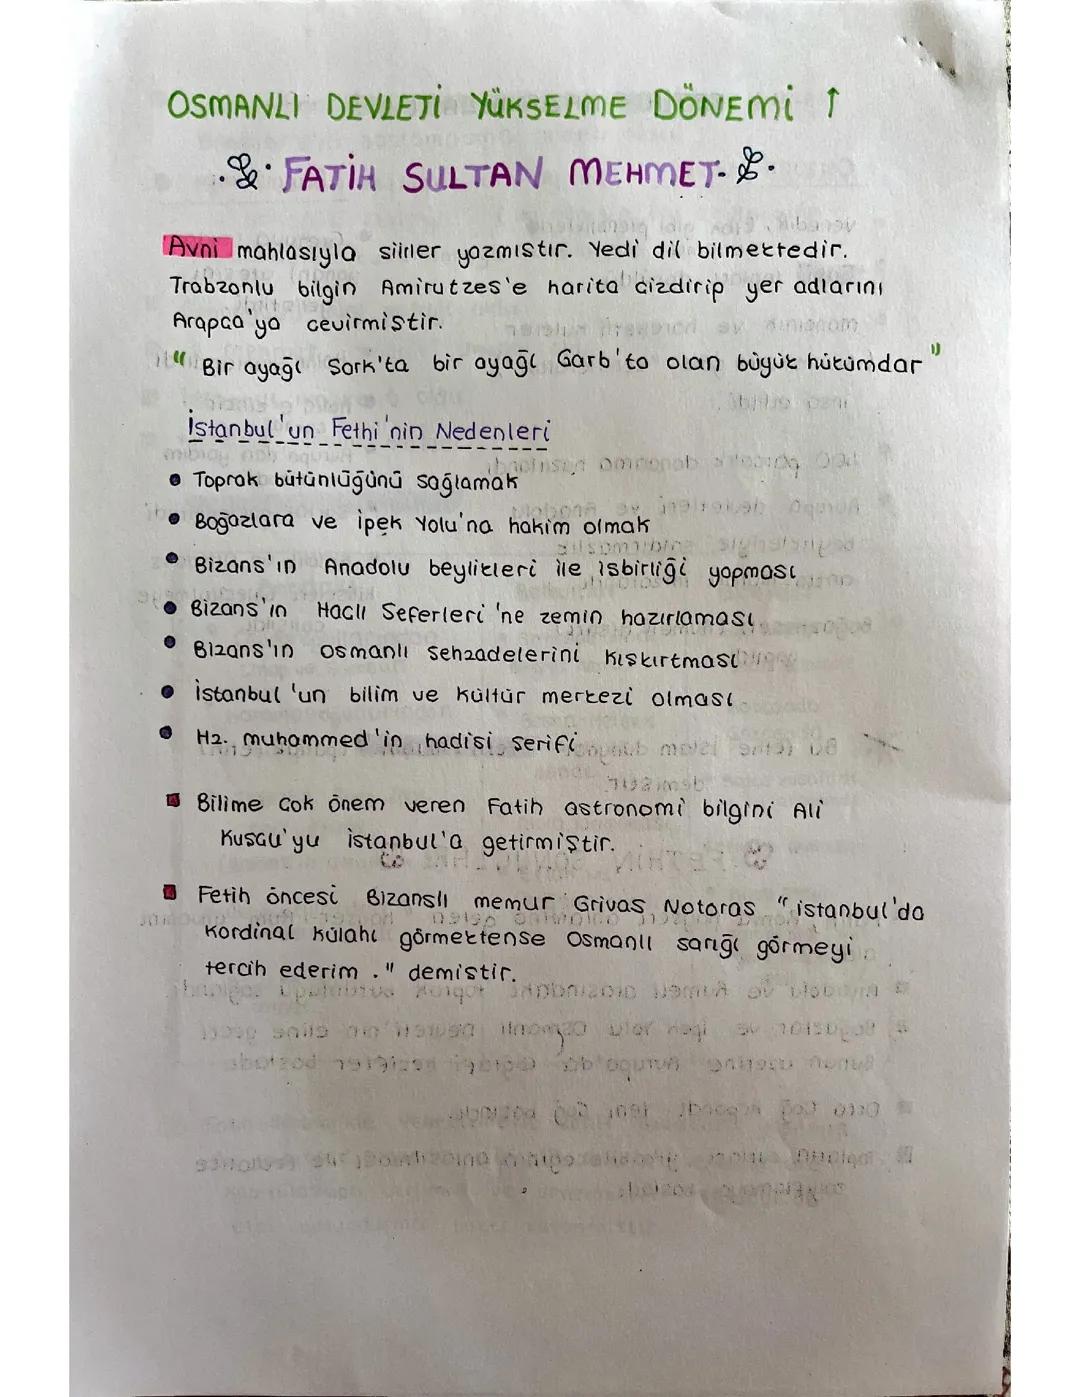 OSMANLI DEVLETİ YÜKSELME DÖNEMİ ↑
FATİH SULTAN MEHMET
Avni mahlasıyla siirler yazmıstır. Yedi dil bilmektedir.
Trabzonlu bilgin Amirutzes'e harita cizdirip yer adlarını
Arapca'ya cevirmiştir.
" Bir ayağı Sark'ta bir ayağı Garb'ta olan büyük hükümdar "
İstanbul'un Fethi'nin Nedenleri
• Toprak bütünlüğünü sağlamak
• Boğazlara ve ipek Yolu'na hakim olmak
• Bizans'ın Anadolu beylikleri ile isbirliği yapması
• Bizans'ın Haclı Seferleri'ne zemin hazırlaması
• Bizans'ın osmanlı sehzadelerini kışkırtması
• istanbul'un bilim ve kültür merkezi olması
• Hz. muhammed'in hadisi serifi
Bilime cok önem veren Fatih astronomi bilgini Ali
Kuscu'yu istanbul'a getirmiştir.
Fetih öncesi Bizanslı memur Grivas Notoras "istanbul'da
Kordinal külahı görmektense Osmanlı sarığı görmeyi
tercih ederim ." demistir.